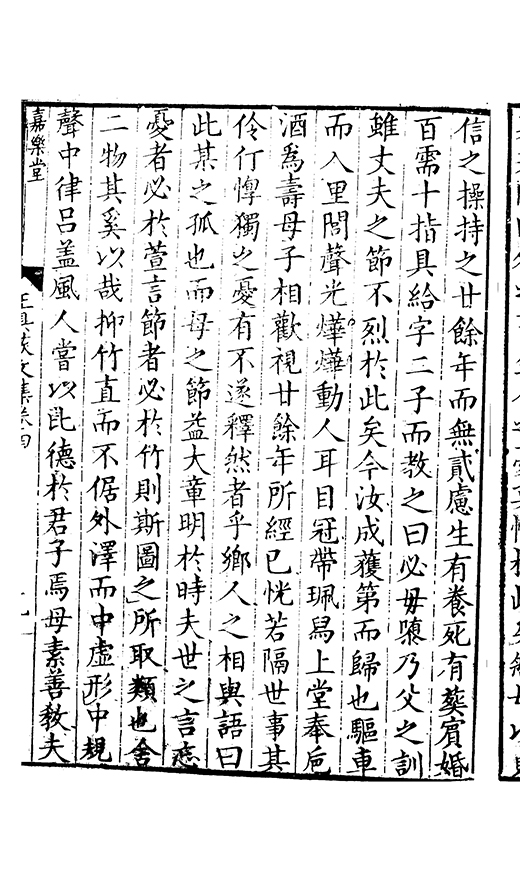 信之操持之廿餘年而無貳慮生有養死有葬賓婚
百需十指具給字二子而教之曰必毋隳乃父之訓
雖丈夫之節不烈於此矣今汝成獲第而歸也驅車
而入里閭聲光燁燁動人耳目冠帶珮舄上堂奉巵
酒爲壽母子相歡視廿餘年所經已恍若隔世事其
伶仃惸獨之憂有不遂釋然者乎鄉人之相與語曰
此某之孤也而母之節益大章明於時夫世之言忘
憂者必於萱言節者必於竹則斯圖之所取類也舍
二物其奚以哉抑竹直而不倨外澤而中虛形中規
聲中律呂盖風人嘗以比德於君子焉母素善教夫
嘉樂堂
文集卷四